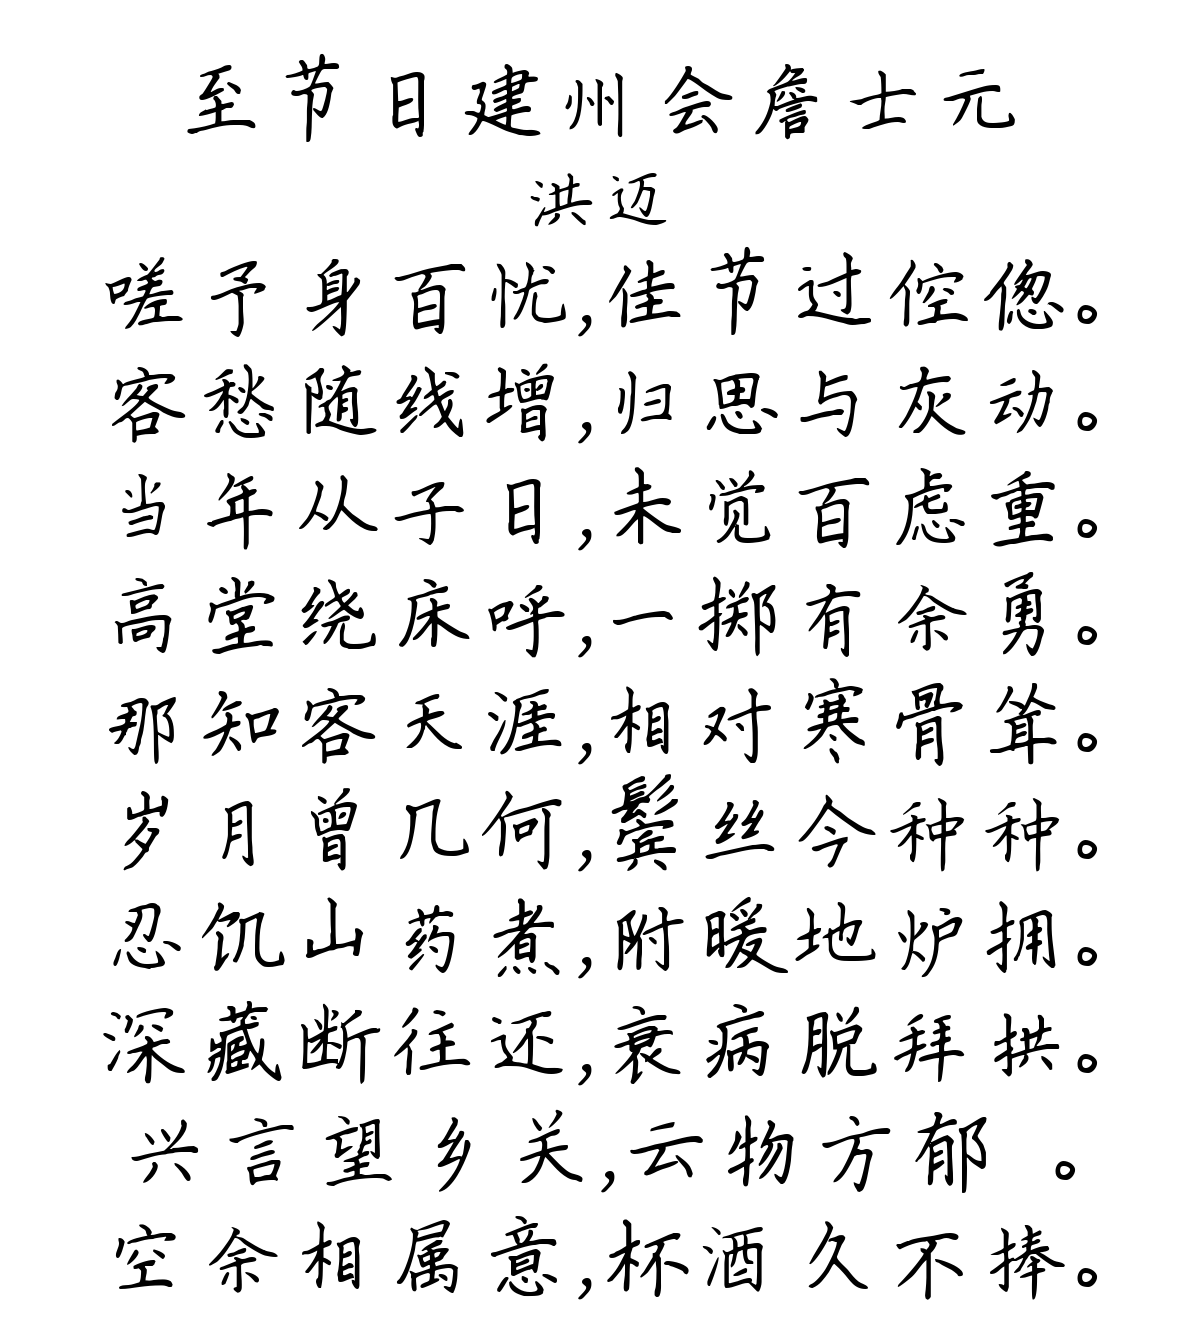 至节日建州会詹士元
洪迈
嗟予身百忧,佳节过倥偬。
客愁随线增,归思与灰动。
当年从子日,未觉百虑重。
高堂绕床呼,一掷有余勇。
那知客天涯,相对寒骨耸。
岁月曾几何,鬓丝今种种。
忍饥山药煮,附暖地炉拥。
深藏断往还,衰病脱拜拱。
兴言望乡关,云物方郁 。
空余相属意,杯酒久不捧。